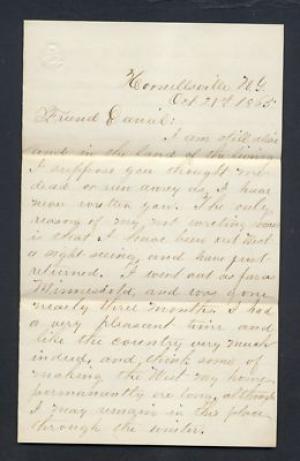 Hornellsville N.Y.
Oct 21st 1865
Friend Daniel:
I am still alive
and in the land of the living
I suppose you thought me
dead or run away as I have
never written you. The only
reason of my not writing
is that I have been out West
a sight seeing, and have just
returned. I went out as far as
Minnesota, and was gone
nearly three months. I had
a very pleasant time and
like the country very much
indeed, and, think some of
making the West my home
permanently ere long, although
I may remain in this place
through the winter.